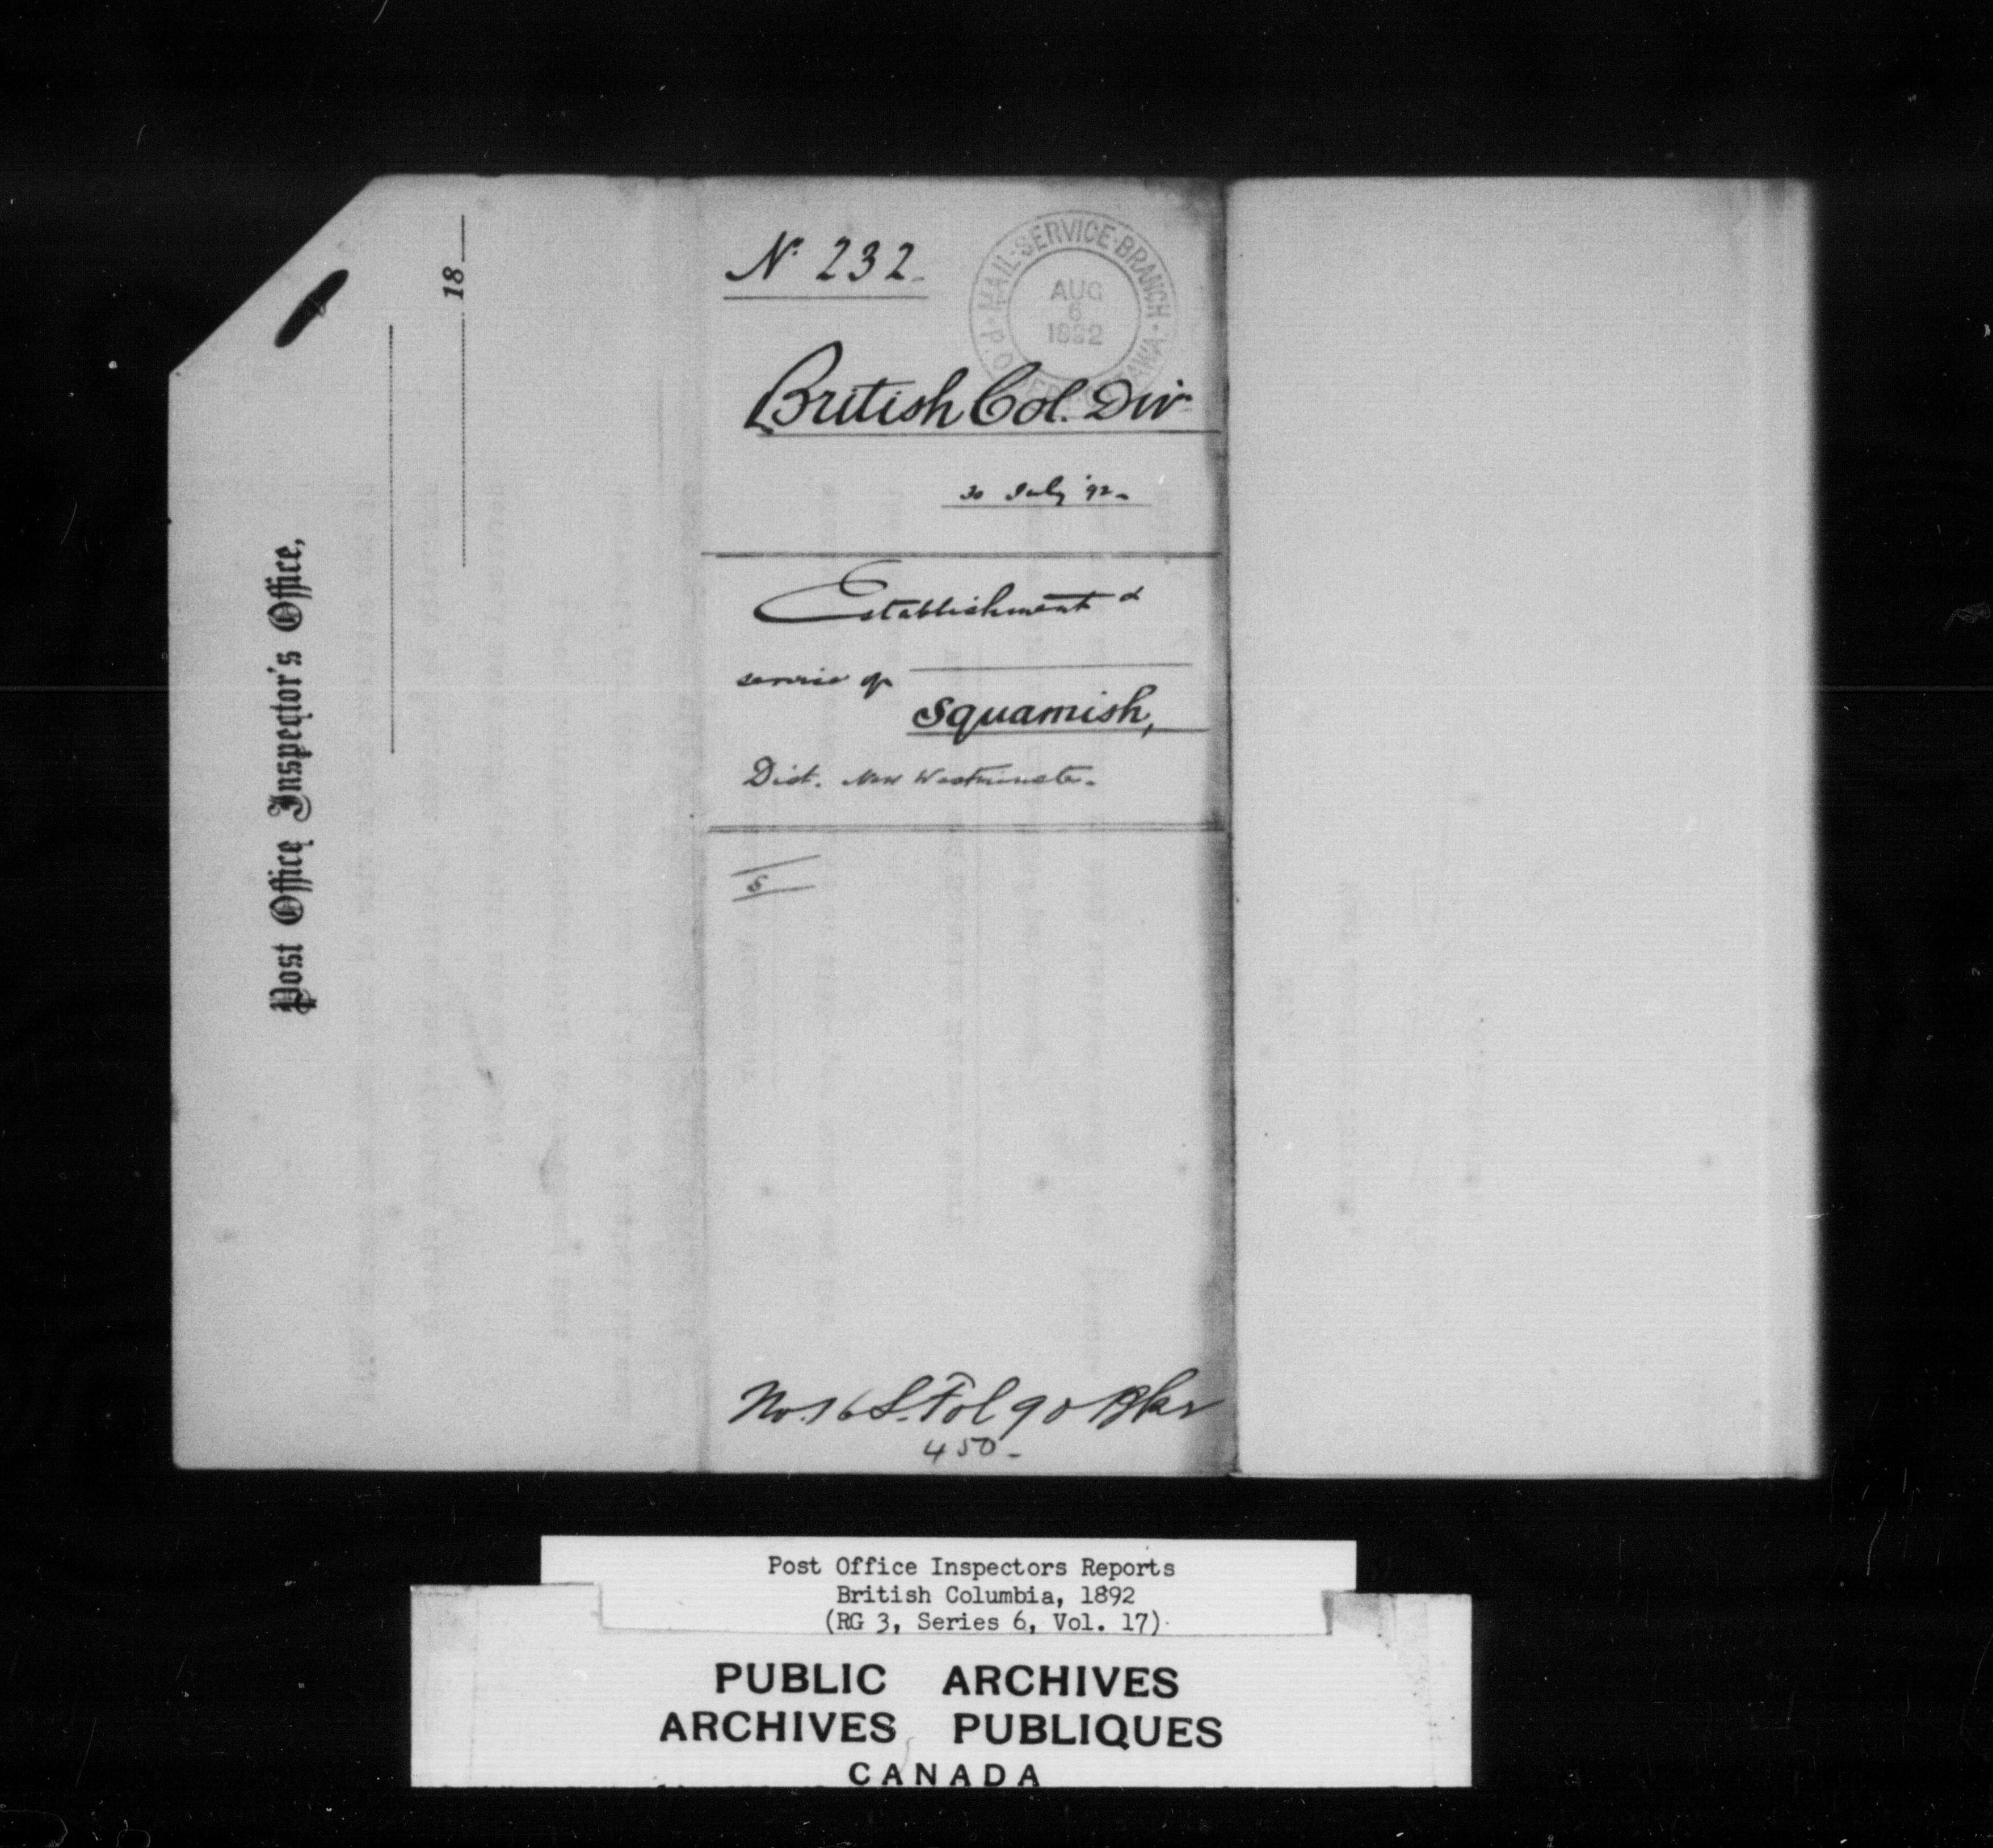 Post Office Inspector's Office,
18
No. 232
MAIL SERVICE BRANCH
AUG
6
1892
P.O. OTTAWA
British Col. Div.
30 July '92
Establishment &
service of
Squamish,
Dist. New Westminster.
5
No. 16 S. Fol 90
450
Post Office Inspectors Reports
British Columbia, 1892
(RG 3, Series 6, Vol. 17)
PUBLIC ARCHIVES
ARCHIVES PUBLIQUES
CANADA